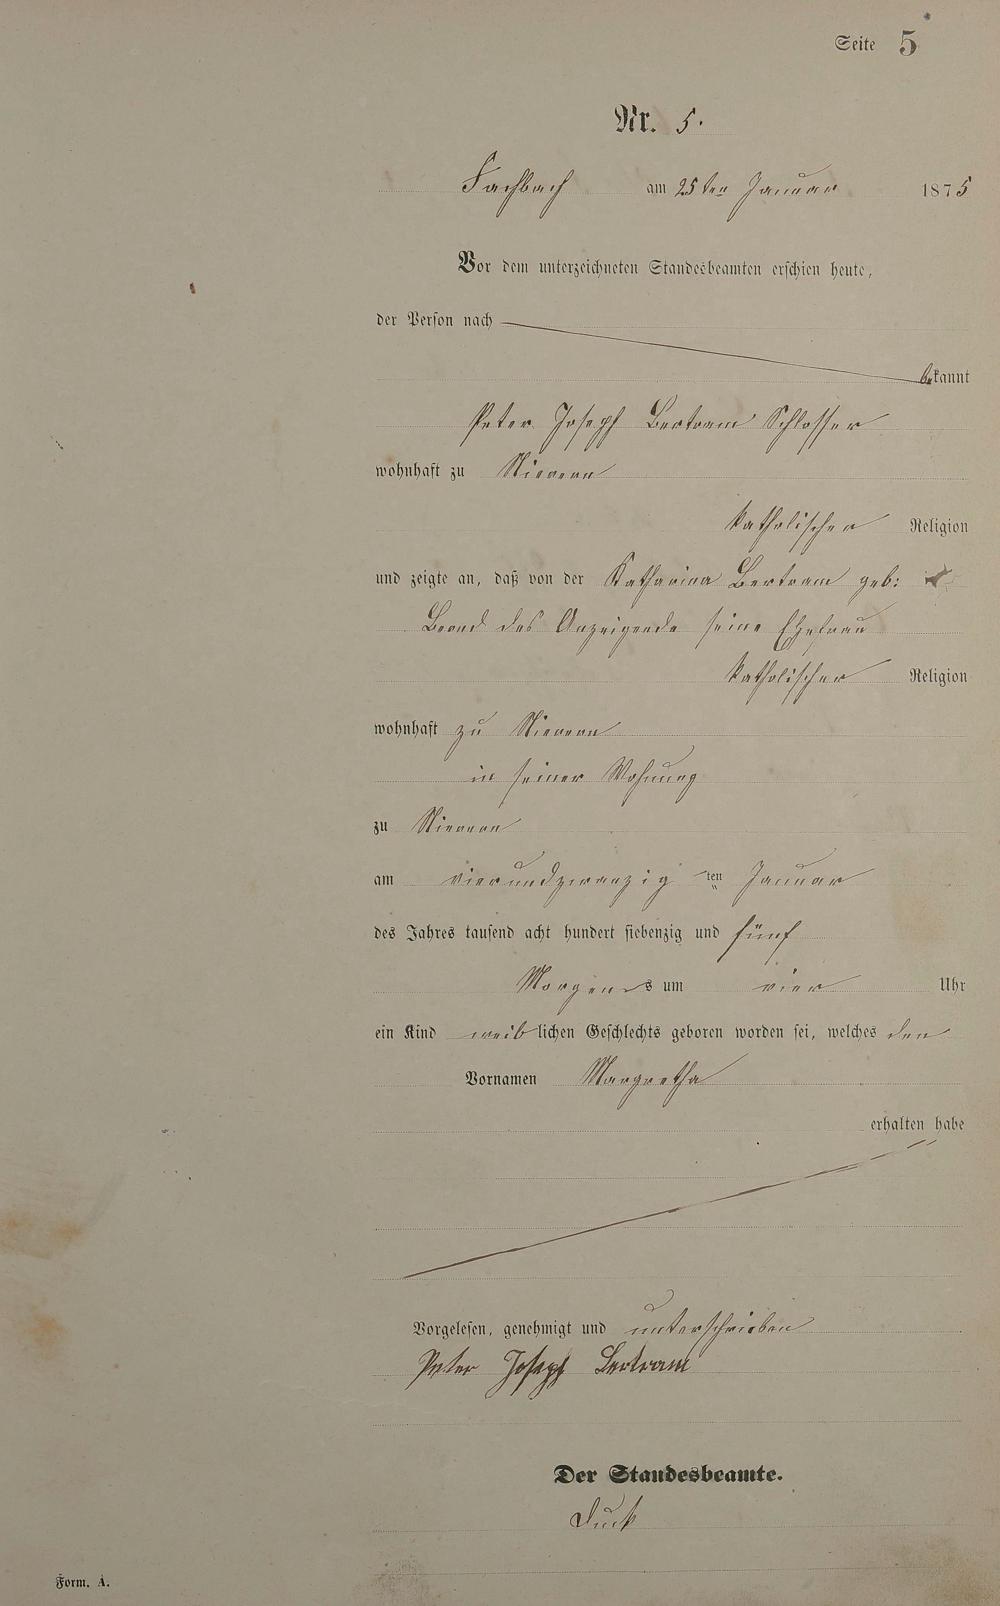 Seite 5
Nr. 5.
Fachbach am 25ten Januar 1875
Vor dem unterzeichneten Standesbeamten erschien heute,
der Person nach
bekannt
Peter Joseph Bertram Schlosser
wohnhaft zu Nievern
katholischer Religion
und zeigte an, daß von der Katharina Bertram geb:
des Anzeigende seine Ehefrau
katholischer Religion
wohnhaft zu Nievern
in seiner Wohnung
zu Nievern
am vierundzwanzig ten Januar
des Jahres tausend acht hundert siebenzig und fünf
Morgens um vier Uhr
ein Kind weiblichen Geschlechts geboren worden sei, welches den
Vornamen Margretha
erhalten habe
Vorgelesen, genehmigt und unterschrieben
Peter Joseph Bertram
Der Standesbeamte.
Form. A.